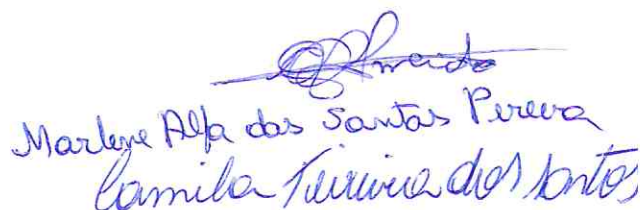 Almeida
Marlene Alfa dos Santos Pereira
Camila Teixeira dos Santos